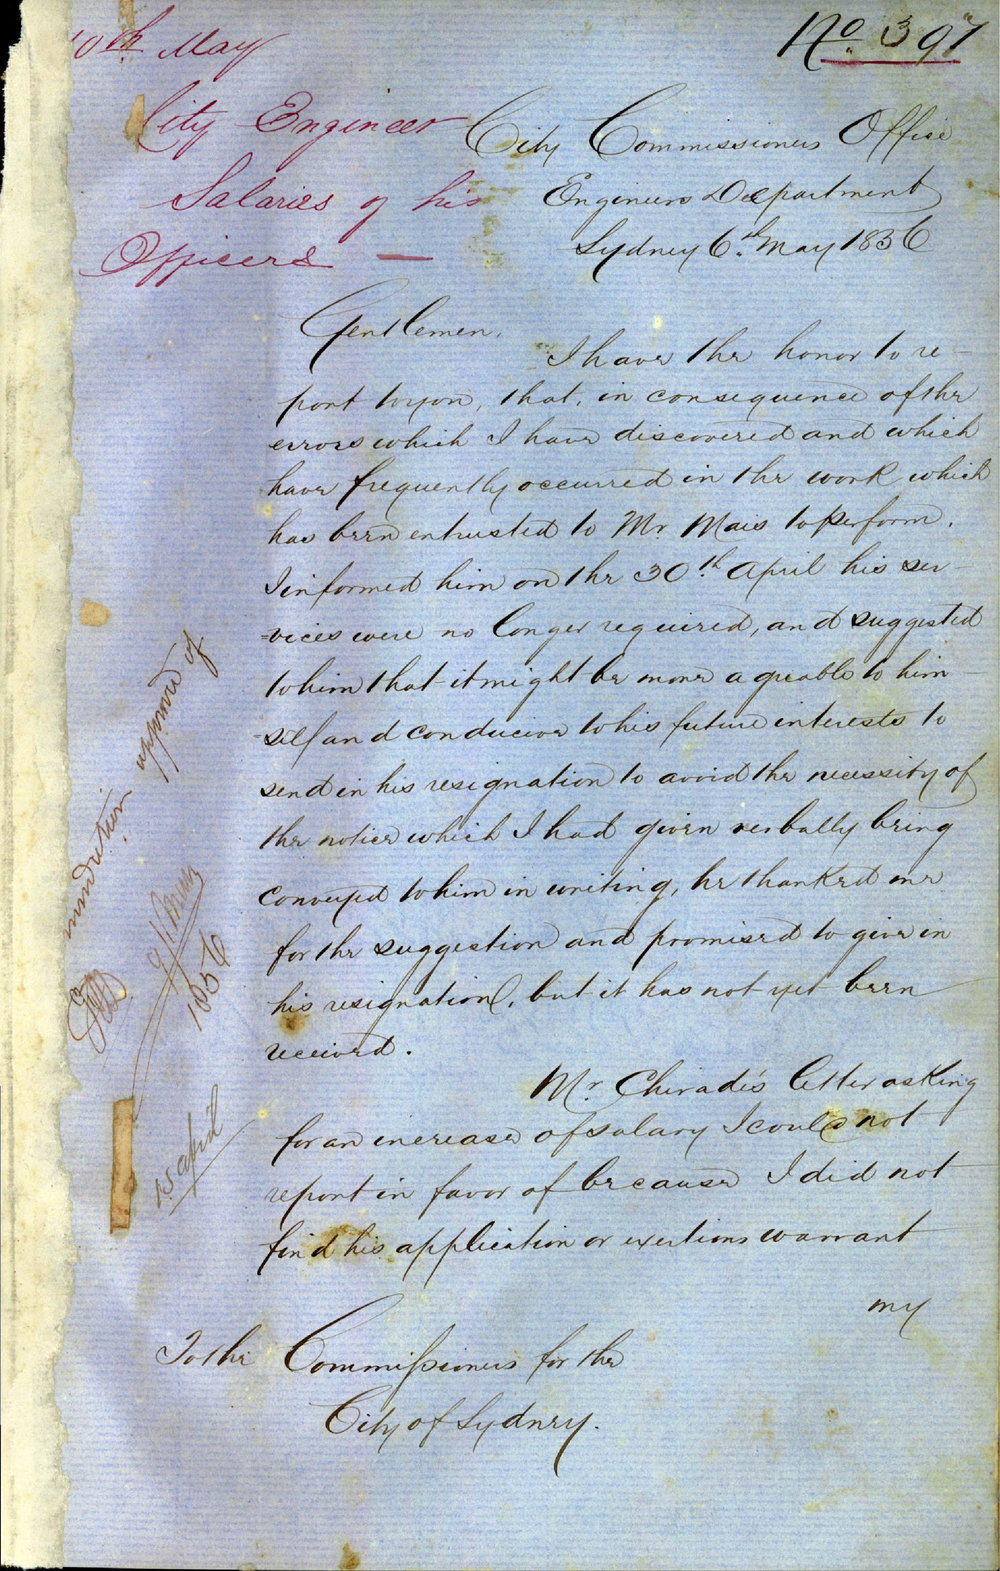 10th May
No. 397
City Engineer
Salaries of his
Officers —
City Commissioners Office
Engineers Department
Sydney 6th. May 1856
Gentlemen,
I have the honor to re-
port to you, that, in consequence of the
errors which I have discovered and which
have frequently occurred in the work which
has been entrusted to Mr Mais to perform.
I informed him on the 30th. April his ser-
=vices were no longer required, and suggested
to him that it might be more agreable to him-
-self and conducive to his future interests to
send in his resignation to avoid the necessity of
the notice which I had given verbally being
conveyed to him in writing, he thanked me
for the suggestion and promised to give in
his resignation, but it has not yet been
received.
Mr. Chirade's letter asking
for an increase of salary I could not
report in favor of because I did not
find his application or exertions warrant
my
To the Commissioners for the
City of Sydney.
approved of
1856
15 April